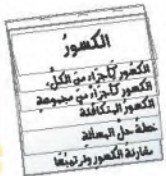 الكسور
الكسور كأجزاء من الكل
الكسور كأجزاء من مجموعة
الكسور المتكافئة
خطة حل المسألة
مقارنة الكسور وترتيبها